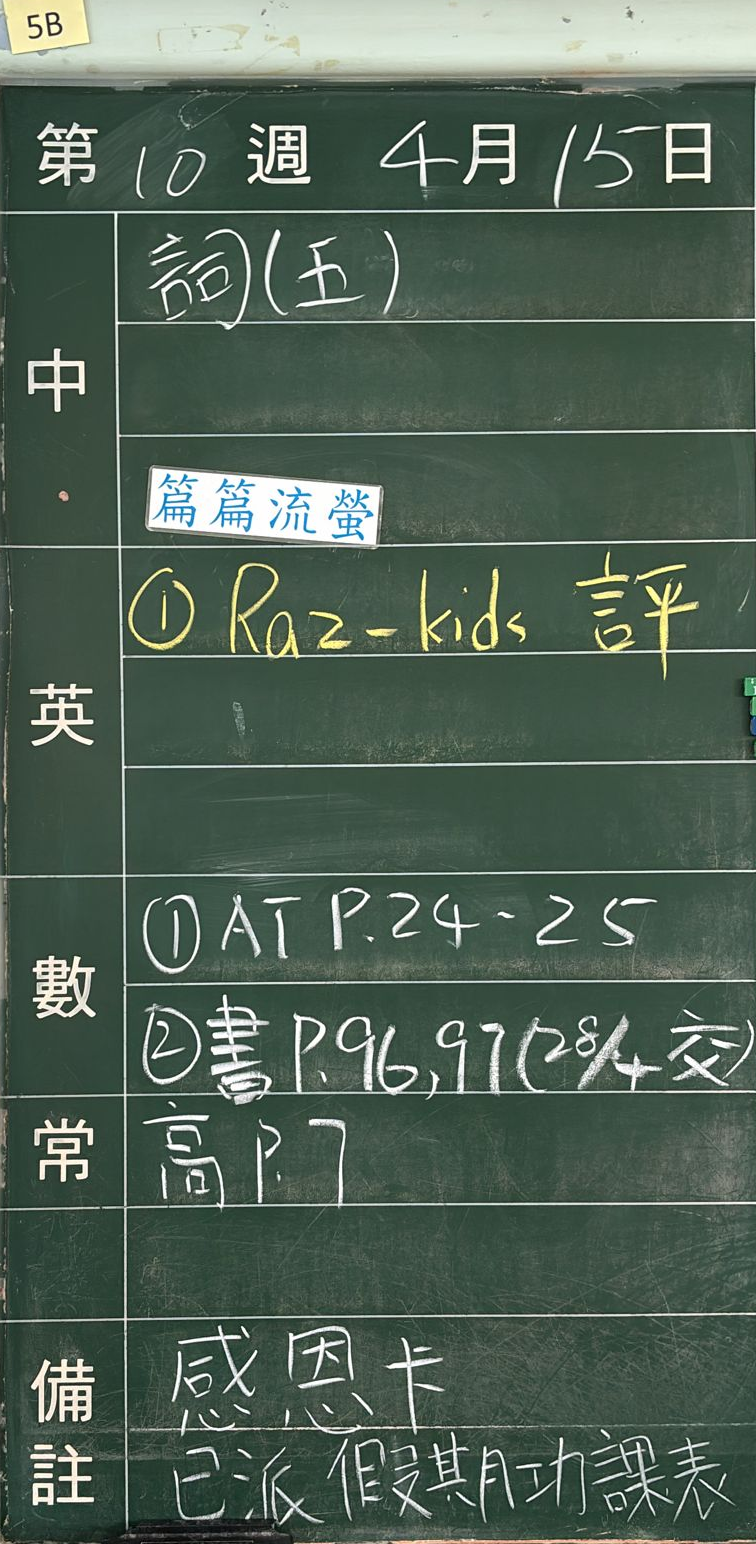 5B
第 10 週 4月 15日
中
詞(五)
篇篇流螢
英
① Raz-kids 評
數
① AT P.24-25
② 書 P.96,97(28/4 交)
常
高 P.7
備註
感恩卡
已派假期功課表